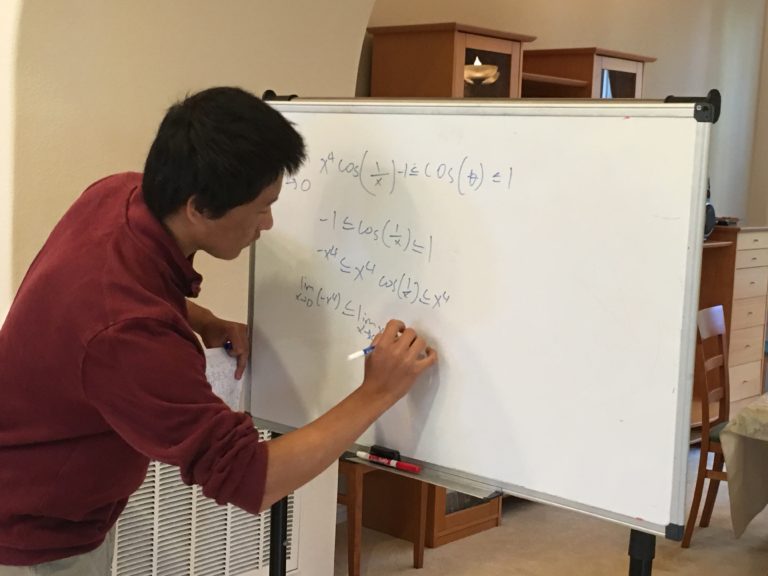 →0 x⁴ cos(1/x) -1 ≤ cos(θ) ≤ 1
-1 ≤ cos(1/x) ≤ 1
-x⁴ ≤ x⁴ cos(1/x) ≤ x⁴
lim x→0 (-x⁴) ≤ lim x→0